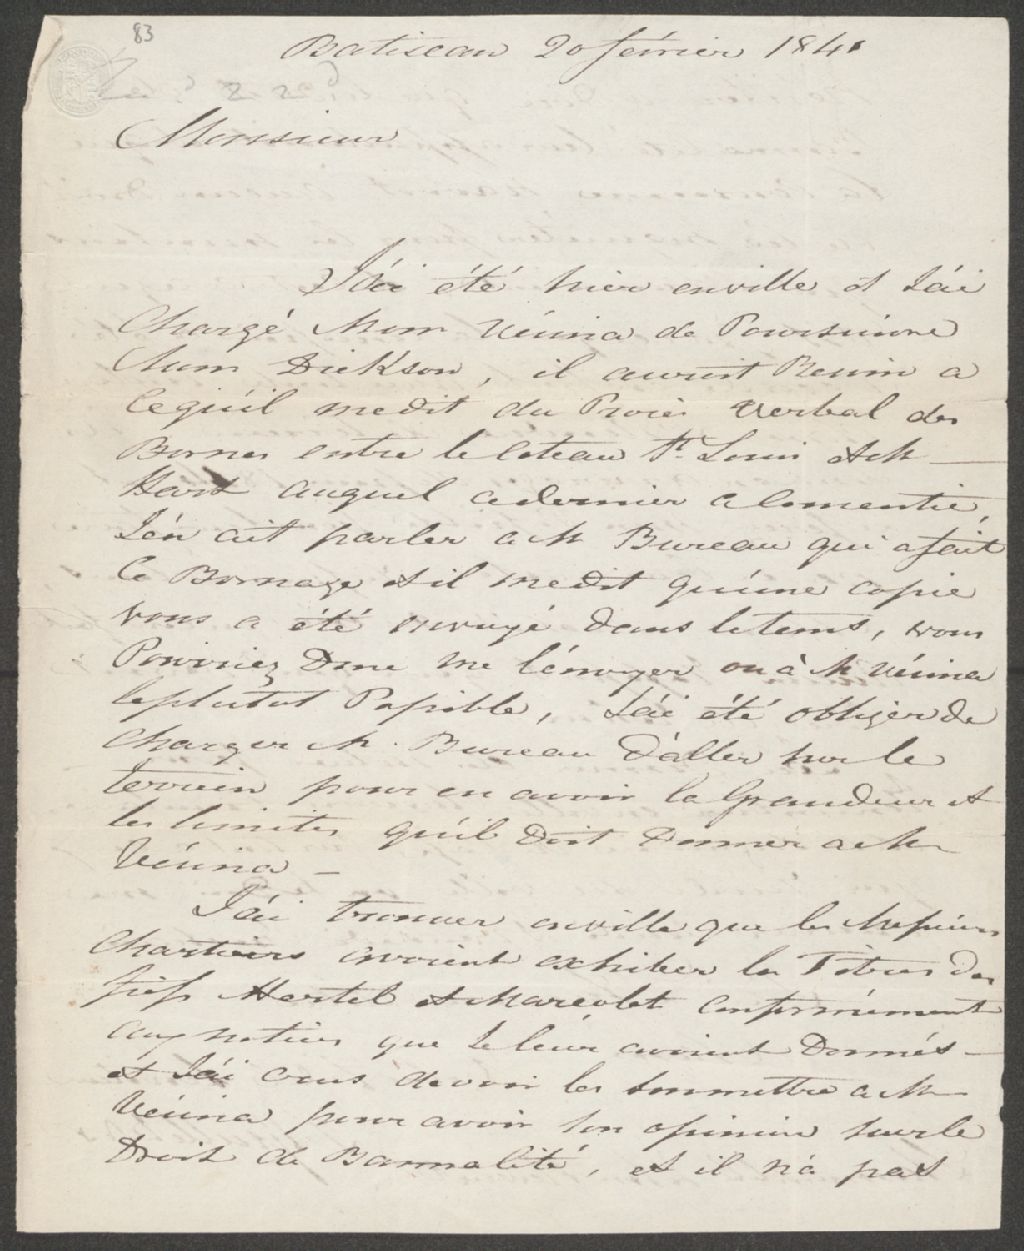 83
Batiscan 20 février 1841
Monsieur
J'ai été hier enville et J'ai
Chargé Mom Vézina de Poursuivre
Chum Dickson, il auroit Besoin a
Cequ'il medit du Procès verbal des
Bornes entre le Coteau St. Louis et M
Hart auquel cedernier a Consentie,
J'én ait parler a M Bureau qui a fait
Ce Bornage et il medit qu'une copie
vous a été envoyé dans letems, vous
Pourriez Donc me l'énvoyer ou à M Vézina
leplutot Possible, J'ai été obliger de
Charger M. Bureau D'aller sur le
terrein pour en avoir la Grandeur et
les limites qu'il Doit Donner a M
Vézina —
J'ai trouver enville que les Messieurs
Chartiers avoient exhiber les Titres des
fiefs Hertel et Marcolet conformément
aux notices que Je leur avoient Donnés —
et J'ai crus devoir les soumettre a M
Vézina pour avoir son opinion sur le
Droit de Bannalité, et il n'a pas